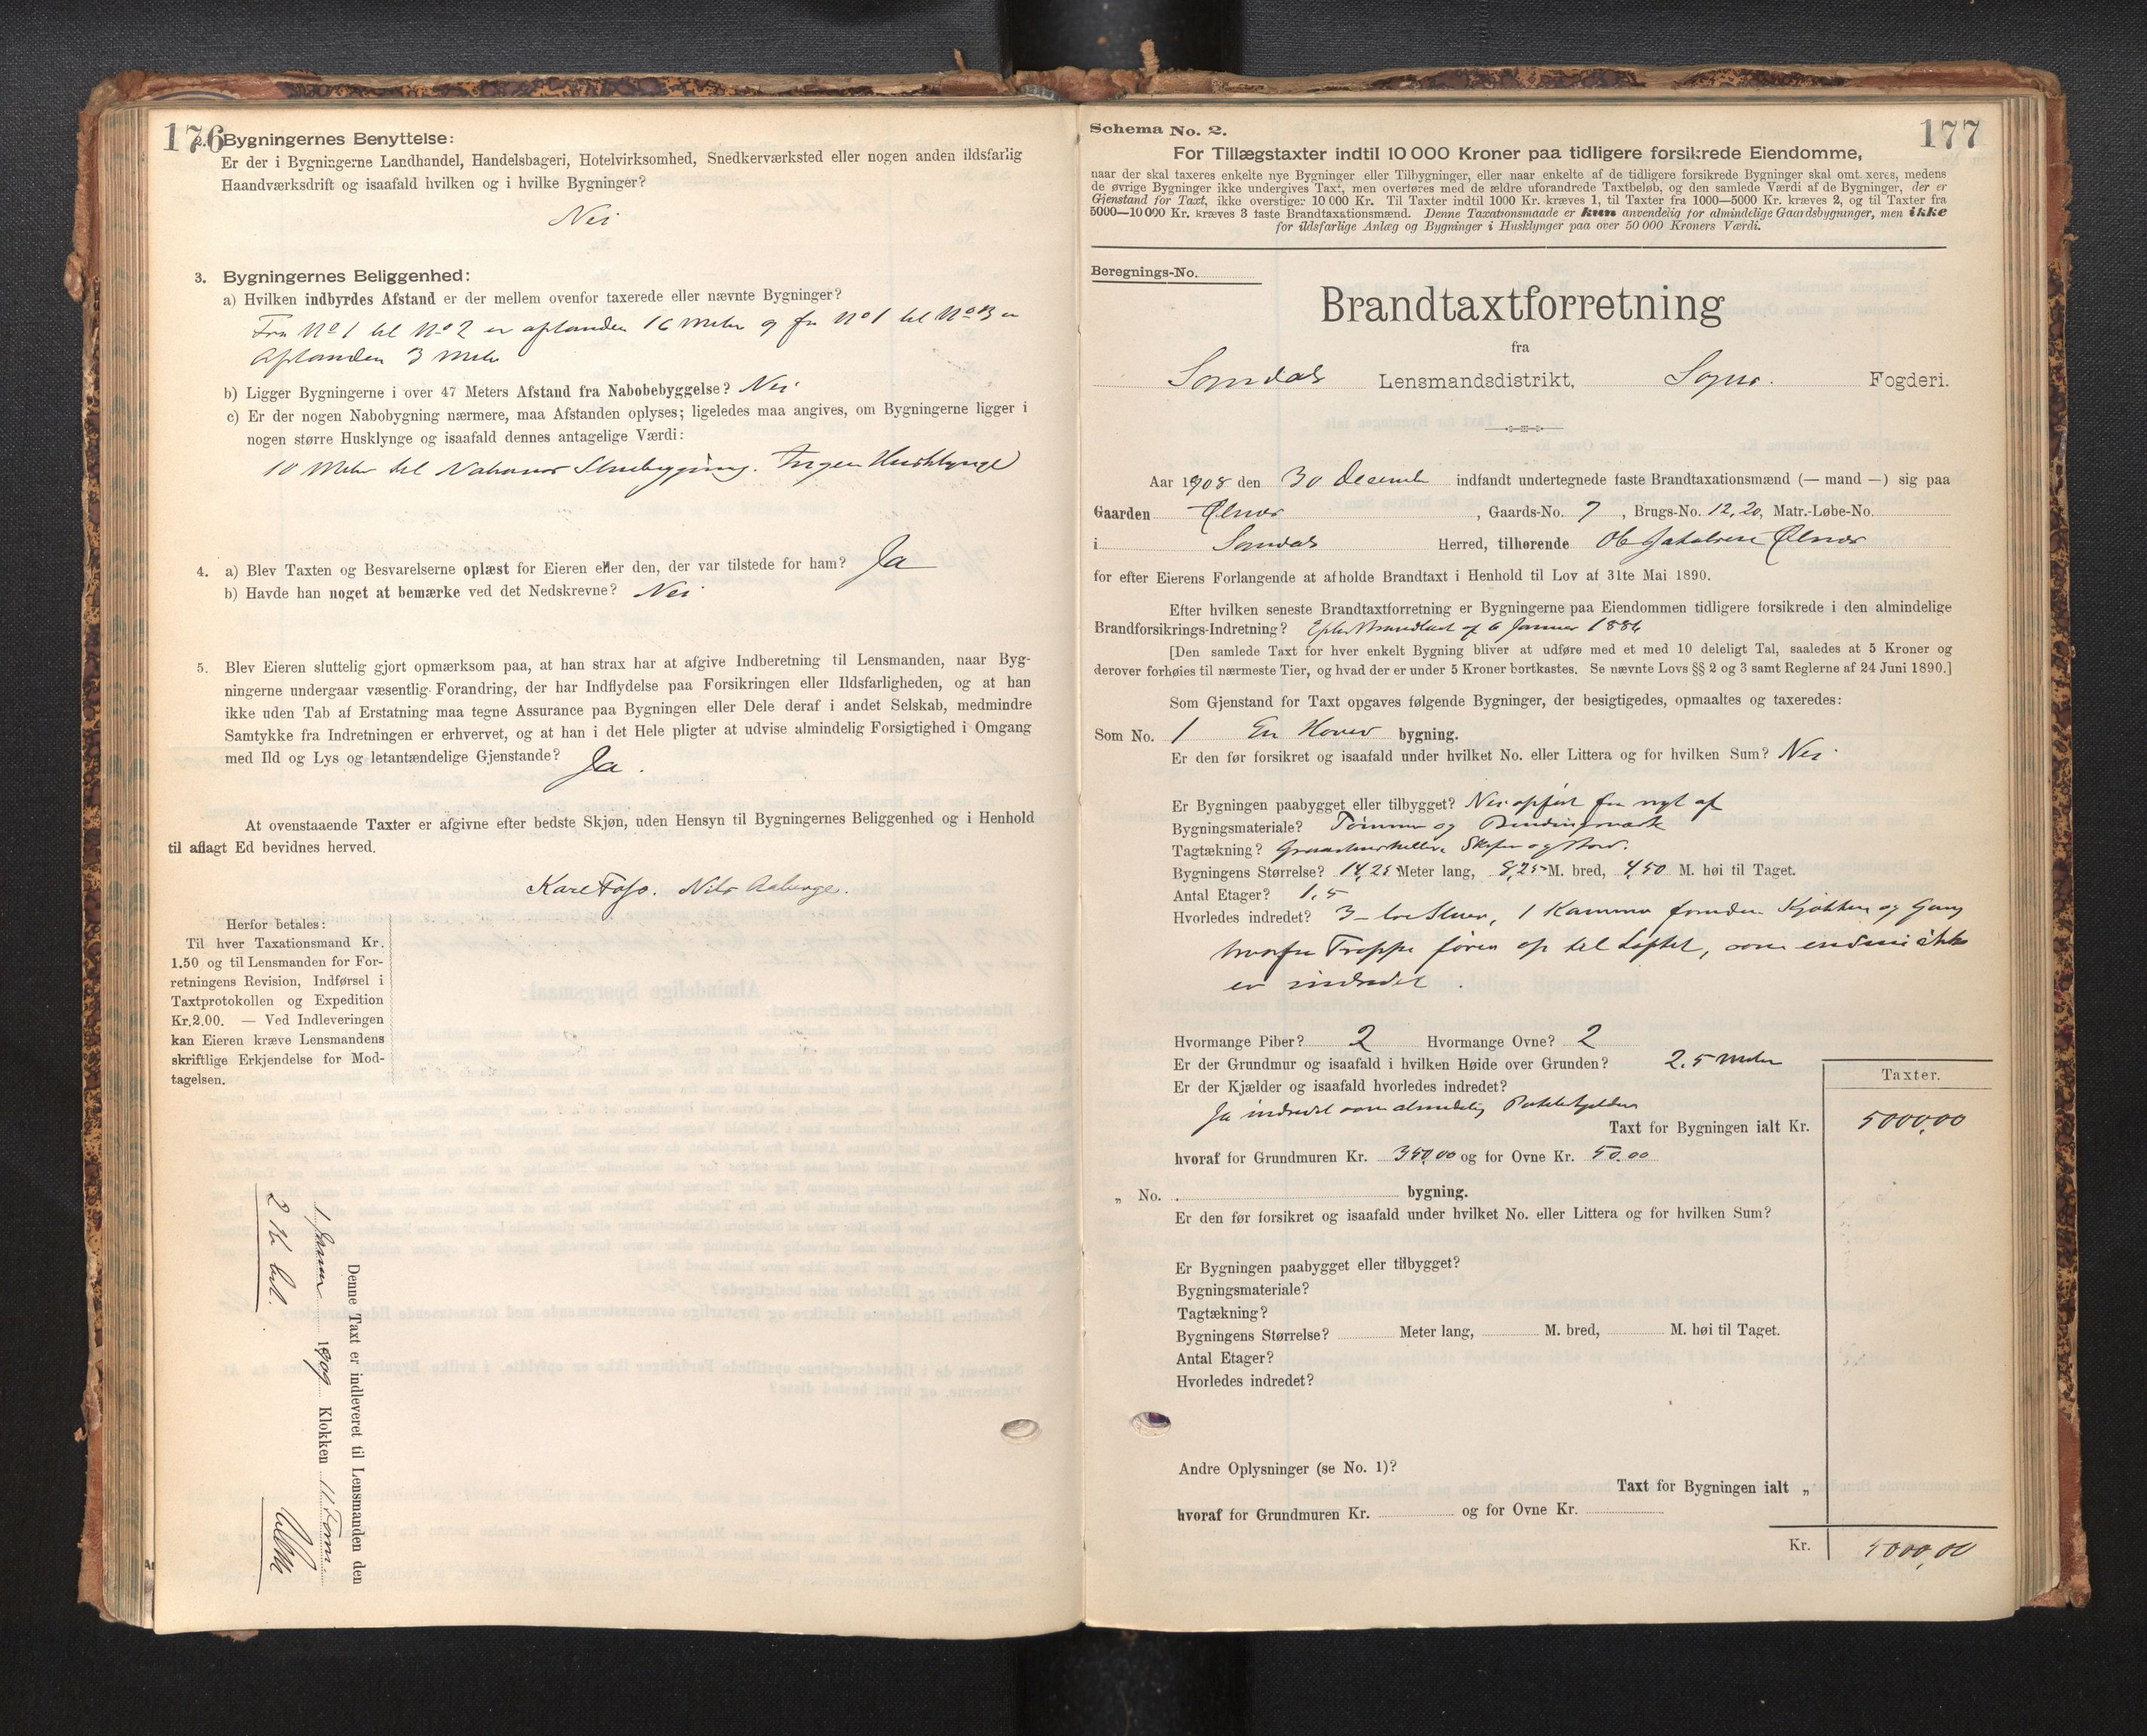 176
2. Bygningernes Benyttelse:
Er der i Bygningerne Landhandel, Handelsbageri, Hotelvirksomhed, Snedkerværksted eller nogen anden ildsfarlig
Haandværksdrift og isaafald hvilken og i hvilke Bygninger?
Nei
3. Bygningernes Beliggenhed:
a) Hvilken indbyrdes Afstand er der mellem ovenfor taxerede eller nævnte Bygninger?
Fra No 1 til No 2 er afstanden 16 Meter og fra No 1 til No 3 er
Afstanden 3 Meter
b) Ligger Bygningerne i over 47 Meters Afstand fra Nabobebyggelse? Nei
c) Er der nogen Nabobygning nærmere, maa Afstanden oplyses; ligeledes maa angives, om Bygningerne ligger i
nogen større Husklynge og isaafald dennes antagelige Værdi:
10 Meter til Naboens Stuebygning. Ingen Husklynge
4. a) Blev Taxten og Besvarelserne oplæst for Eieren eller den, der var tilstede for ham? Ja
b) Havde han noget at bemærke ved det Nedskrevne? Nei
5. Blev Eieren sluttelig gjort opmærksom paa, at han strax har at afgive Indberetning til Lensmanden, naar Byg-
ningerne undergaar væsentlig Forandring, der har Indflydelse paa Forsikringen eller Ildsfarligheden, og at han
ikke uden Tab af Erstatning maa tegne Assurance paa Bygningen eller Dele deraf i andet Selskab, medmindre
Samtykke fra Indretningen er erhvervet, og at han i det Hele pligter at udvise almindelig Forsigtighed i Omgang
med Ild og Lys og letantændelige Gjenstande? Ja.
At ovenstaaende Taxter er afgivne efter bedste Skjøn, uden Hensyn til Bygningernes Beliggenhed og i Henhold
til aflagt Ed bevidnes herved.
Nils Aaberge.
Herfor betales:
Til hver Taxationsmand Kr.
1.50 og til Lensmanden for For-
retningens Revision, Indførsel i
Taxtprotokollen og Expedition
Kr.2.00. — Ved Indleveringen
kan Eieren kræve Lensmandens
skriftlige Erkjendelse for Mod-
tagelsen.
Denne Taxt er indleveret til Lensmanden den
1 Januar 1909 Klokken 11 Form
2 Kr bet.
Schema No. 2.
177
For Tillægstaxter indtil 10 000 Kroner paa tidligere forsikrede Eiendomme,
naar der skal taxeres enkelte nye Bygninger eller Tilbygninger, eller naar enkelte af de tidligere forsikrede Bygninger skal omt xeres, medens
de øvrige Bygninger ikke undergives Taxt, men overføres med de ældre uforandrede Taxtbeløb, og den samlede Værdi af de Bygninger, der er
Gjenstand for Taxt, ikke overstiger 10 000 Kr. Til Taxter indtil 1000 Kr. kræves 1, til Taxter fra 1000—5000 Kr. kræves 2, og til Taxter fra
5000—10 000 Kr. kræves 3 faste Brandtaxationsmænd. Denne Taxationsmaade er kun anvendelig for almindelige Gaardsbygninger, men ikke
for ildsfarlige Anlæg og Bygninger i Husklynger paa over 50 000 Kroners Værdi.
Beregnings-No.
Brandtaxtforretning
fra
Sogndals Lensmandsdistrikt, Sogns. Fogderi.
Aar 1908 den 30 December indfandt undertegnede faste Brandtaxationsmænd (— mand —) sig paa
Gaarden Ølnes, Gaards-No. 7, Brugs-No. 12, 20, Matr.-Løbe-No.
i Sogndals Herred, tilhørende Ole Jakobsen Ølnes
for efter Eierens Forlangende at afholde Brandtaxt i Henhold til Lov af 31te Mai 1890.
Efter hvilken seneste Brandtaxtforretning er Bygningerne paa Eiendommen tidligere forsikrede i den almindelige
Brandforsikrings-Indretning? Efter Brandtaxt af 6 Januar 1886
[Den samlede Taxt for hver enkelt Bygning bliver at udføre med et med 10 deleligt Tal, saaledes at 5 Kroner og
derover forhøies til nærmeste Tier, og hvad der er under 5 Kroner bortkastes. Se nævnte Lovs §§ 2 og 3 samt Reglerne af 24 Juni 1890.]
Som Gjenstand for Taxt opgaves følgende Bygninger, der besigtigedes, opmaaltes og taxeredes:
Som No. 1 En Hoved bygning.
Er den før forsikret og isaafald under hvilket No. eller Littera og for hvilken Sum? Nei
Er Bygningen paabygget eller tilbygget? Nei opført fra nyt af
Bygningsmateriale? Tømmer og Bindingsværk
Tagtækning? Skifer og Bord.
Bygningens Størrelse? 14,25 Meter lang, 8,25 M. bred, 4,50 M. høi til Taget.
Antal Etager? 1,5
Hvorledes indredet? 3 Stuer, 1 Kammer foruden Kjøkken og Gang
hvorfra Trappe fører op til Loftet, som endnu ikke
er indredet.
Hvormange Piber? 2 Hvormange Ovne? 2
Er der Grundmur og isaafald i hvilken Høide over Grunden? 2.5 Meter
Er der Kjælder og isaafald hvorledes indredet?
Ja indredet som almindelig Potetkjelder
Taxter.
Taxt for Bygningen ialt Kr. 5000,00
hvoraf for Grundmuren Kr. 350,00 og for Ovne Kr. 50.00
„ No. bygning.
Er den før forsikret og isaafald under hvilket No. eller Littera og for hvilken Sum?
Er Bygningen paabygget eller tilbygget?
Bygningsmateriale?
Tagtækning?
Bygningens Størrelse? Meter lang, M. bred, M. høi til Taget.
Antal Etager?
Hvorledes indredet?
Andre Oplysninger (se No. 1)?
Taxt for Bygningen ialt „
hvoraf for Grundmuren Kr. og for Ovne Kr.
Kr. 5000,00